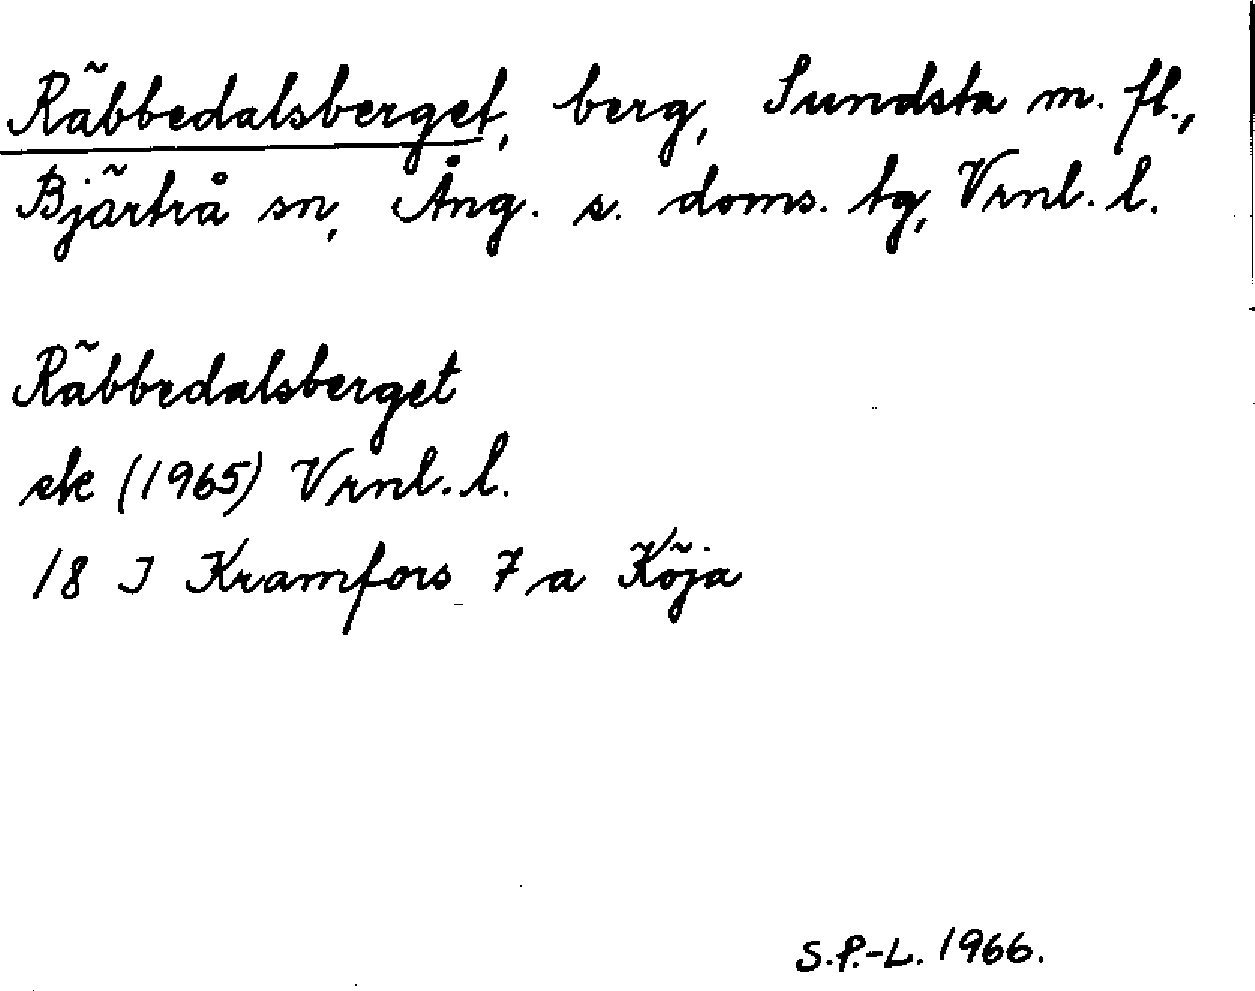 Räbbedalsberget, berg, Sundsta m. fl.,
Bjärtrå sn, Ång. s. doms. tg, Vrnl. l.
Räbbedalsberget
ek (1965) Vrnl. l.
18 I Kramfors 7 a Köja
S.P.-L. 1966.